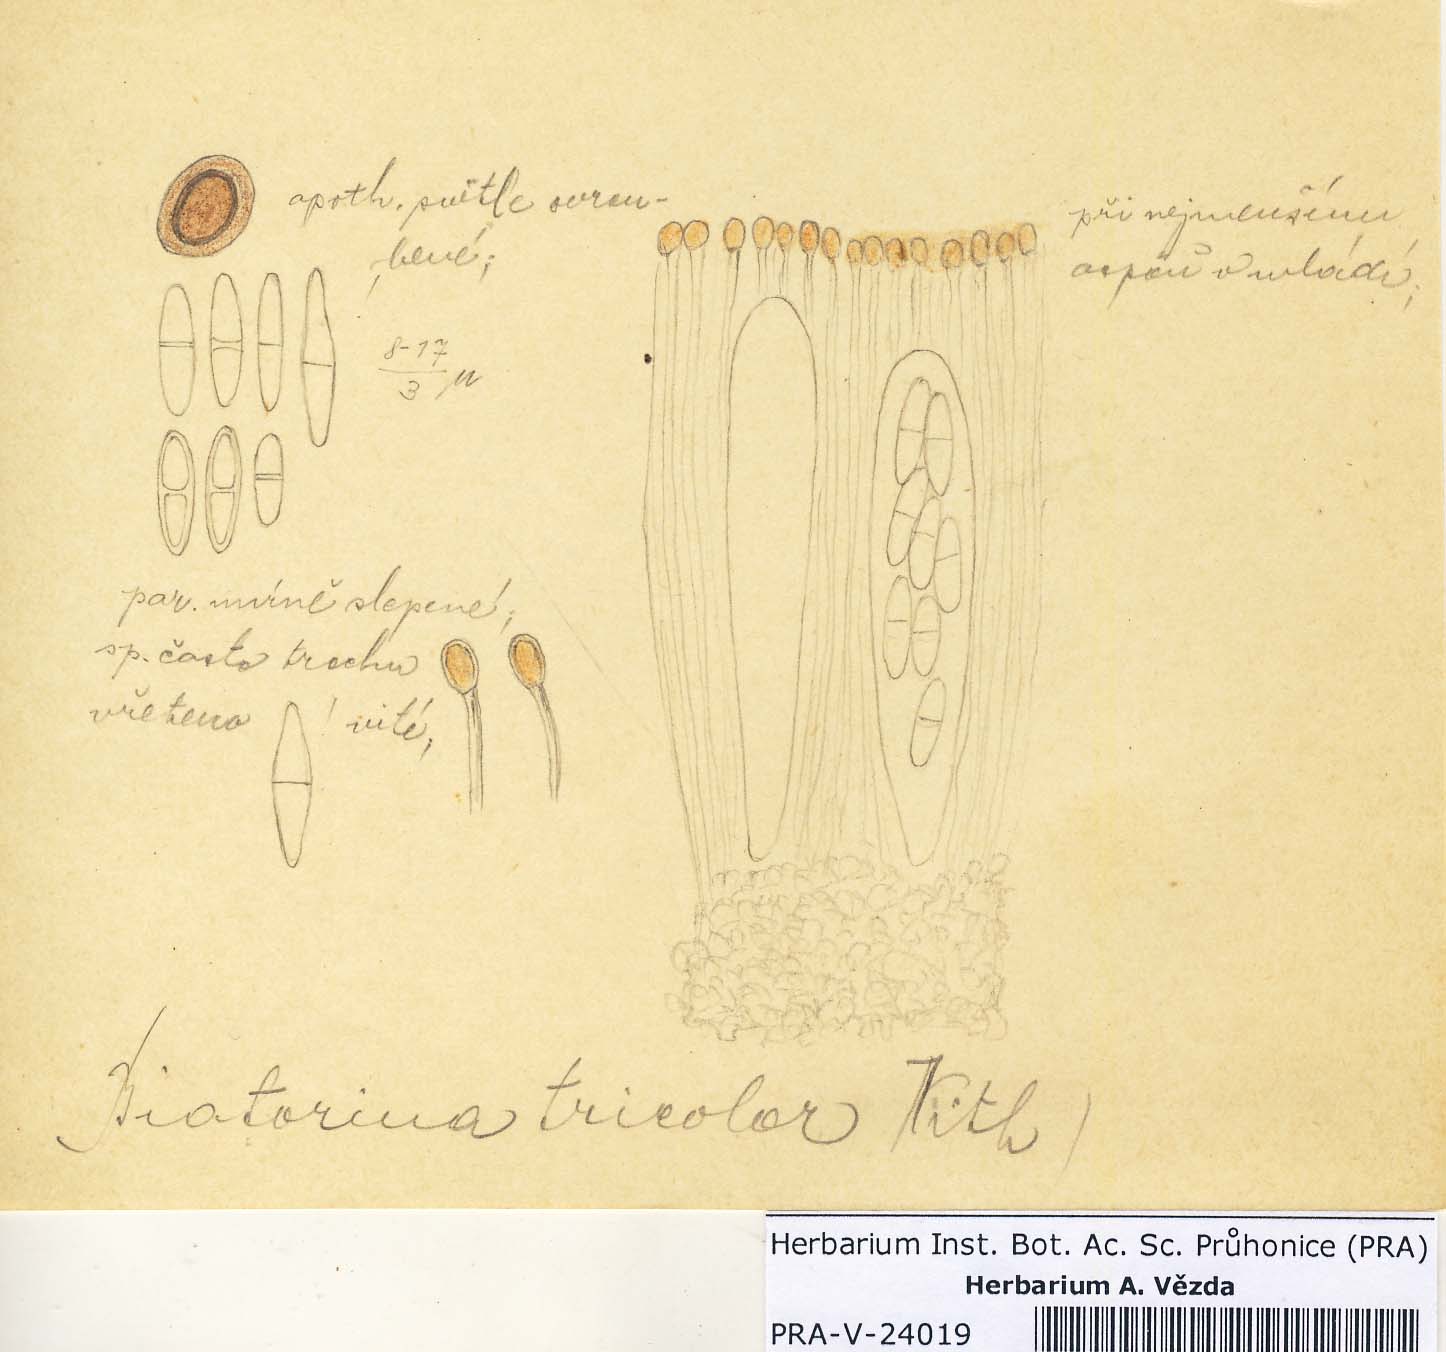 apoth. světle ovrou-
bené;
při nejmenším
aspoň v mládí;
8-17
3 µ
par. mírně slepené;
sp. často trochu
vřeteno ! vité;
Biatorina tricolor (With)
Herbarium Inst. Bot. Ac. Sc. Průhonice (PRA)
Herbarium A. Vězda
PRA-V-24019